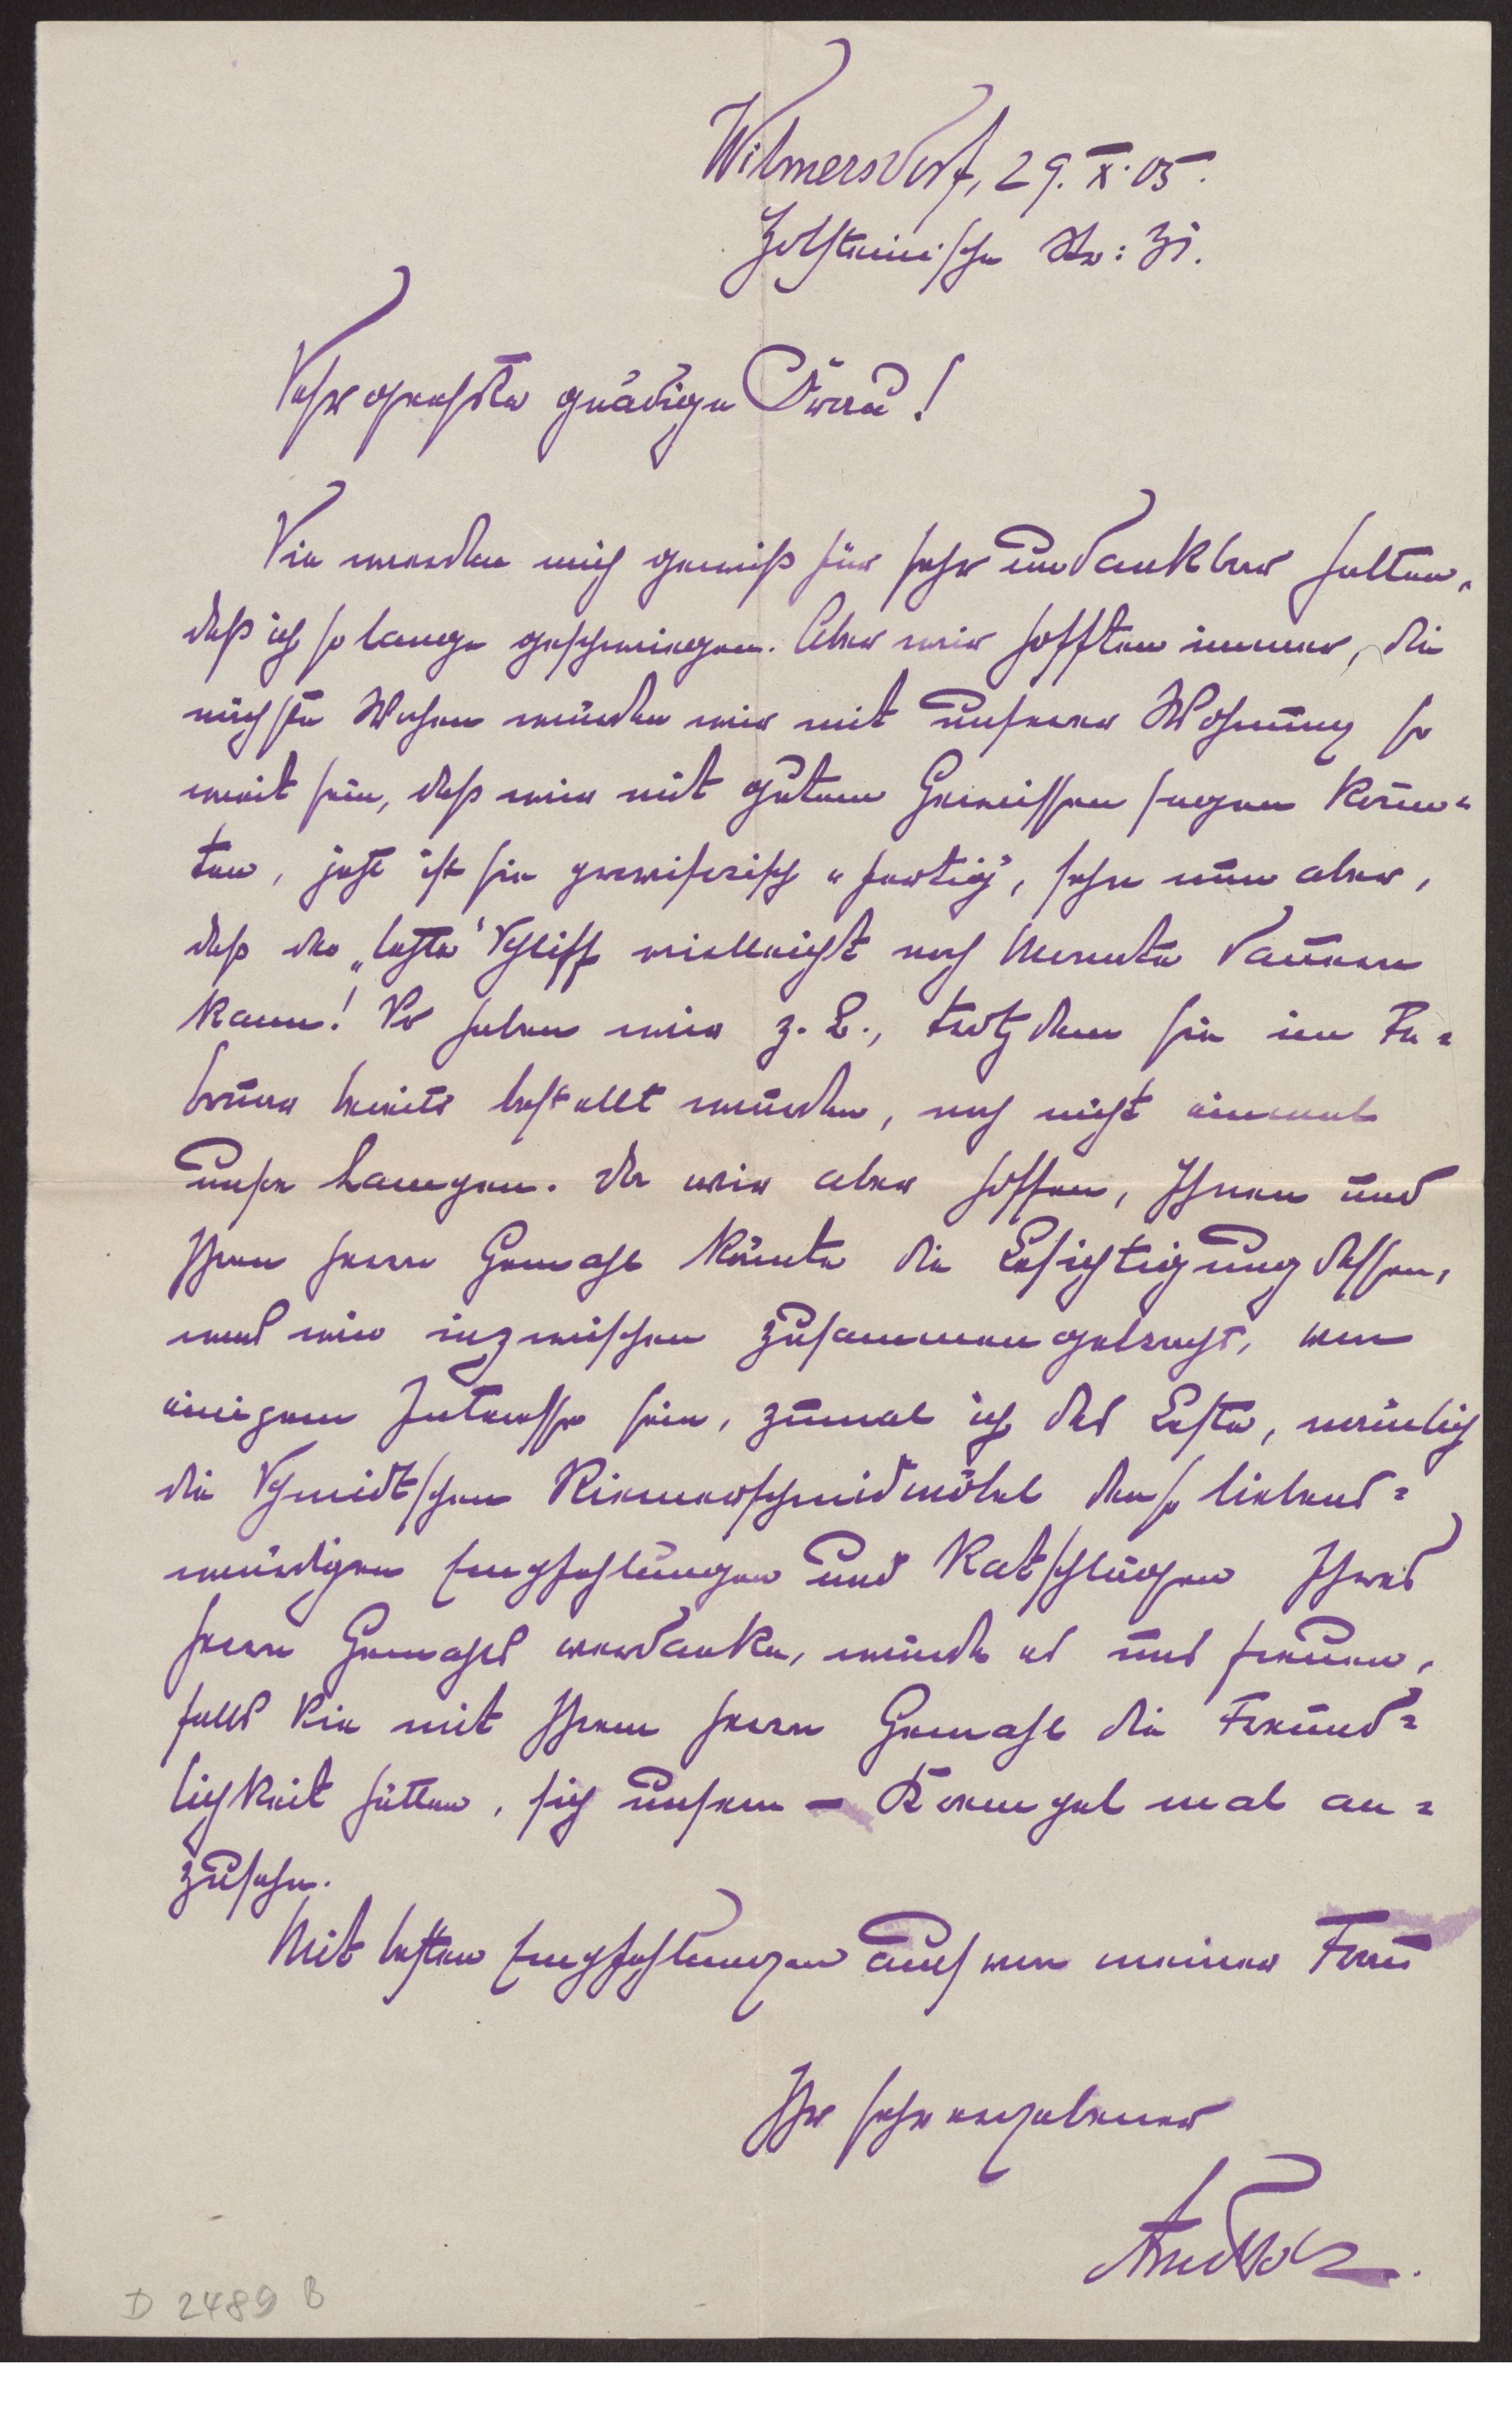 Wilmersdorf, 29. X. 05.
Holsteinische Str: 31.
Sehr geehrte gnädige Frau!
Sie werden mich gewiß für sehr undankbar halten,
daß ich so lange geschwiegen. Aber wir hofften immer, die
nächste Wochen würden wir mit unserer Wohnung so
weit sein, daß wir mit gutem Gewissen sagen könn-
ten, jetzt ist sie provisorisch „fertig", sehe nun aber,
daß der „letzte" Schliff vielleicht noch Monate dauern
kann! So haben wir z. B., trotzdem sie im Fe-
bruar bereits bestellt wurden, noch nicht einmal
unsre Lampen. Da wir aber hoffen, Ihnen und
Ihrem Herrn Gemahl könnte die Besichtigung dessen,
was wir inzwischen zusammengebracht, von
einigem Interesse sein, zumal ich das Beste, nämlich
die Schmidtschen Riemerschmidmöbel den so liebens-
würdigen Empfehlungen und Ratschlägen Ihres
Herrn Gemahls verdanke, würde es uns freuen,
falls Sie mit Ihrem Herrn Gemahl die Freund-
lichkeit hätten, sich unsern – Krempel mal an-
zusehn.
Mit besten Empfehlungen auch von meiner Frau
Ihr sehr ergebener
Arno Holz.
D 2489 B